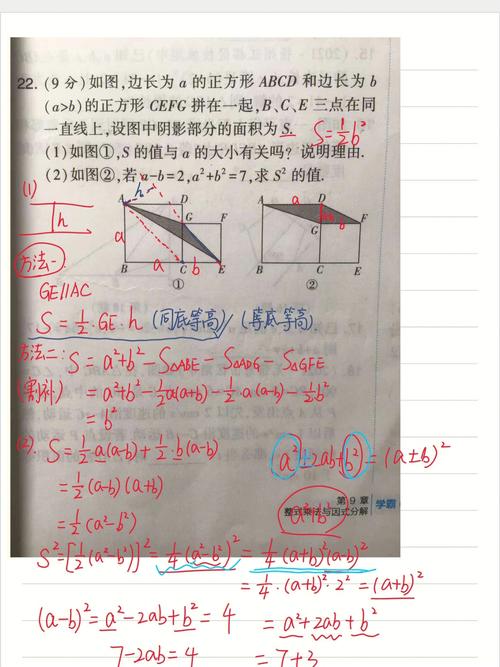 22. (9分)如图,边长为a的正方形ABCD和边长为b
(a>b)的正方形CEFG拼在一起,B、C、E三点在同
一直线上,设图中阴影部分的面积为S. S=½b²
(1)如图①,S的值与a的大小有关吗?说明理由.
(2)如图②,若a-b=2,a²+b²=7,求S²的值.
(1)
h
方法一
GE//AC
A h D G F a B a C b E ①
A a D a-b b F G B C E ②
S=½·GE·h (同底等高)/(等底等高)
方法二: S=a²+b²-S△ABE-S△ADG-S△GFE
(割补) =a²+b²-½a(a+b)-½·a(a-b)-½b²
=½b²
(2). S=½·a(a-b)+½·b(a-b)
=½(a-b)(a+b)
=½(a²-b²)
a²±2ab+b²=(a±b)²
a²+b²
第9章
整式乘法与因式分解 学霸
S²=[½(a²-b²)]²=¼(a²-b²)²=¼(a+b)²(a-b)²
=¼·(a+b)²·2²=(a+b)²
(a-b)²=a²-2ab+b²=4
=a²+2ab+b²
7-2ab=4
=7+3